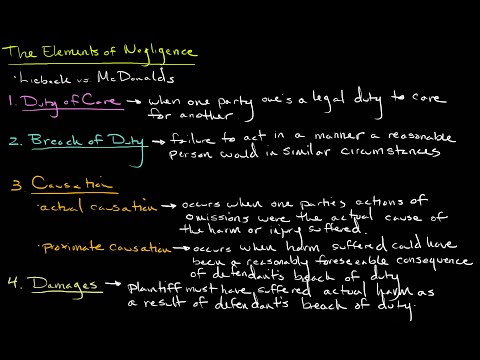 The Elements of Negligence
· Lieback vs. McDonalds
1. Duty of Care → when one party owe's a legal duty to care
for another
2. Breach of Duty → failure to act in a manner a reasonable
person would in similar circumstances
3. Causation
· actual causation → occurs when one parties actions of
omissions were the actual cause of
the harm or injury suffered.
· proximate causation → occurs when harm suffered could have
been a reasonably foreseeable consequence
of defendant's breach of duty
4. Damages → plaintiff must have suffered actual harm as
a result of defendant's breach of duty.